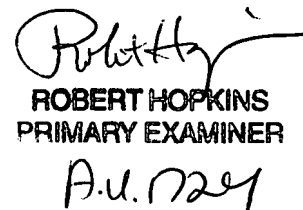 ROBERT HOPKINS
PRIMARY EXAMINER
A.U. 1724